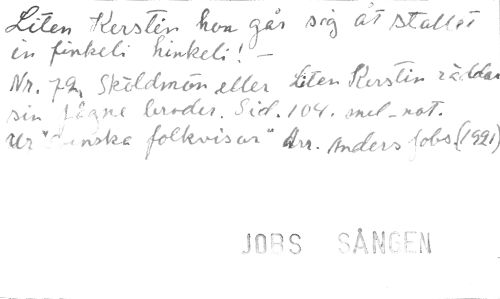 Liten Kerstin hon går sig åt stallet
in finkeli hinkeli! –
Nr. 72, Sköldmön eller Liten Kerstin räddar
sin fågne broder. Sid. 104. mel-not.
Ur "Svenska folkvisor" Arr. Anders Jobs. (1921)
JOBS SÅNGEN